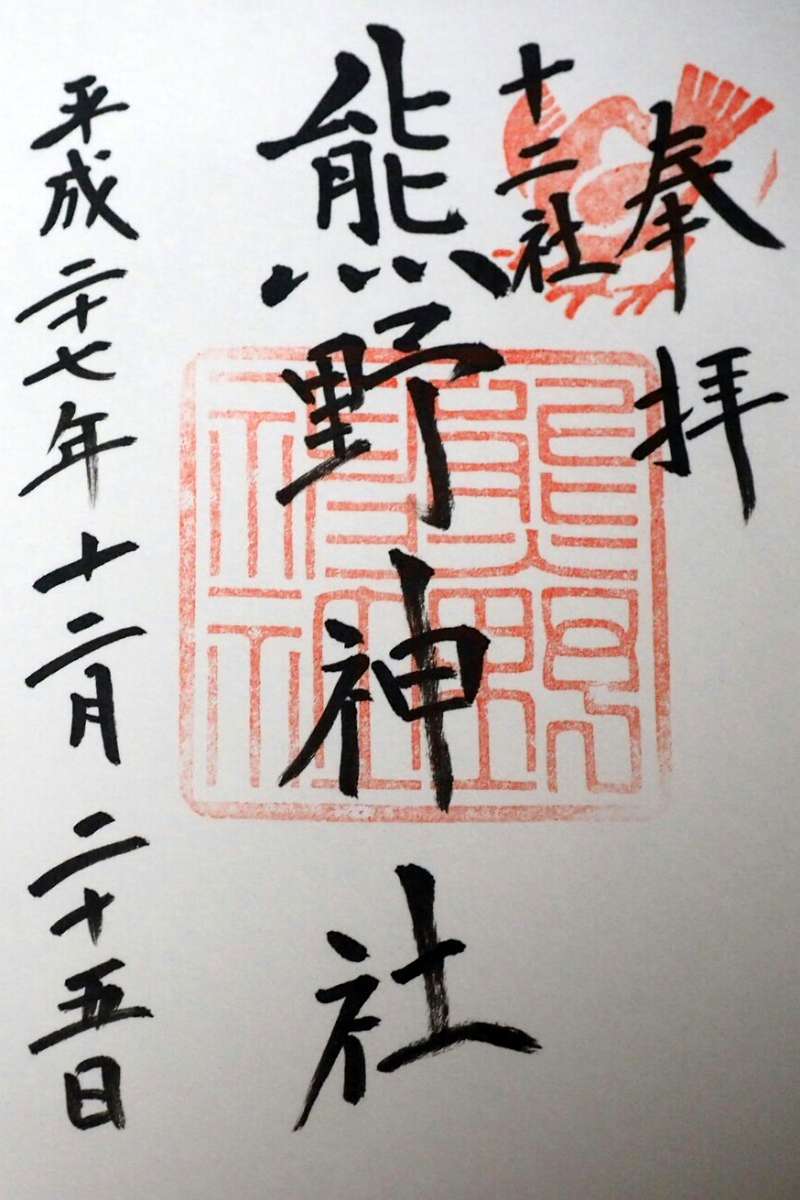 奉拝
十二社
熊野神社
平成二十七年十二月二十五日